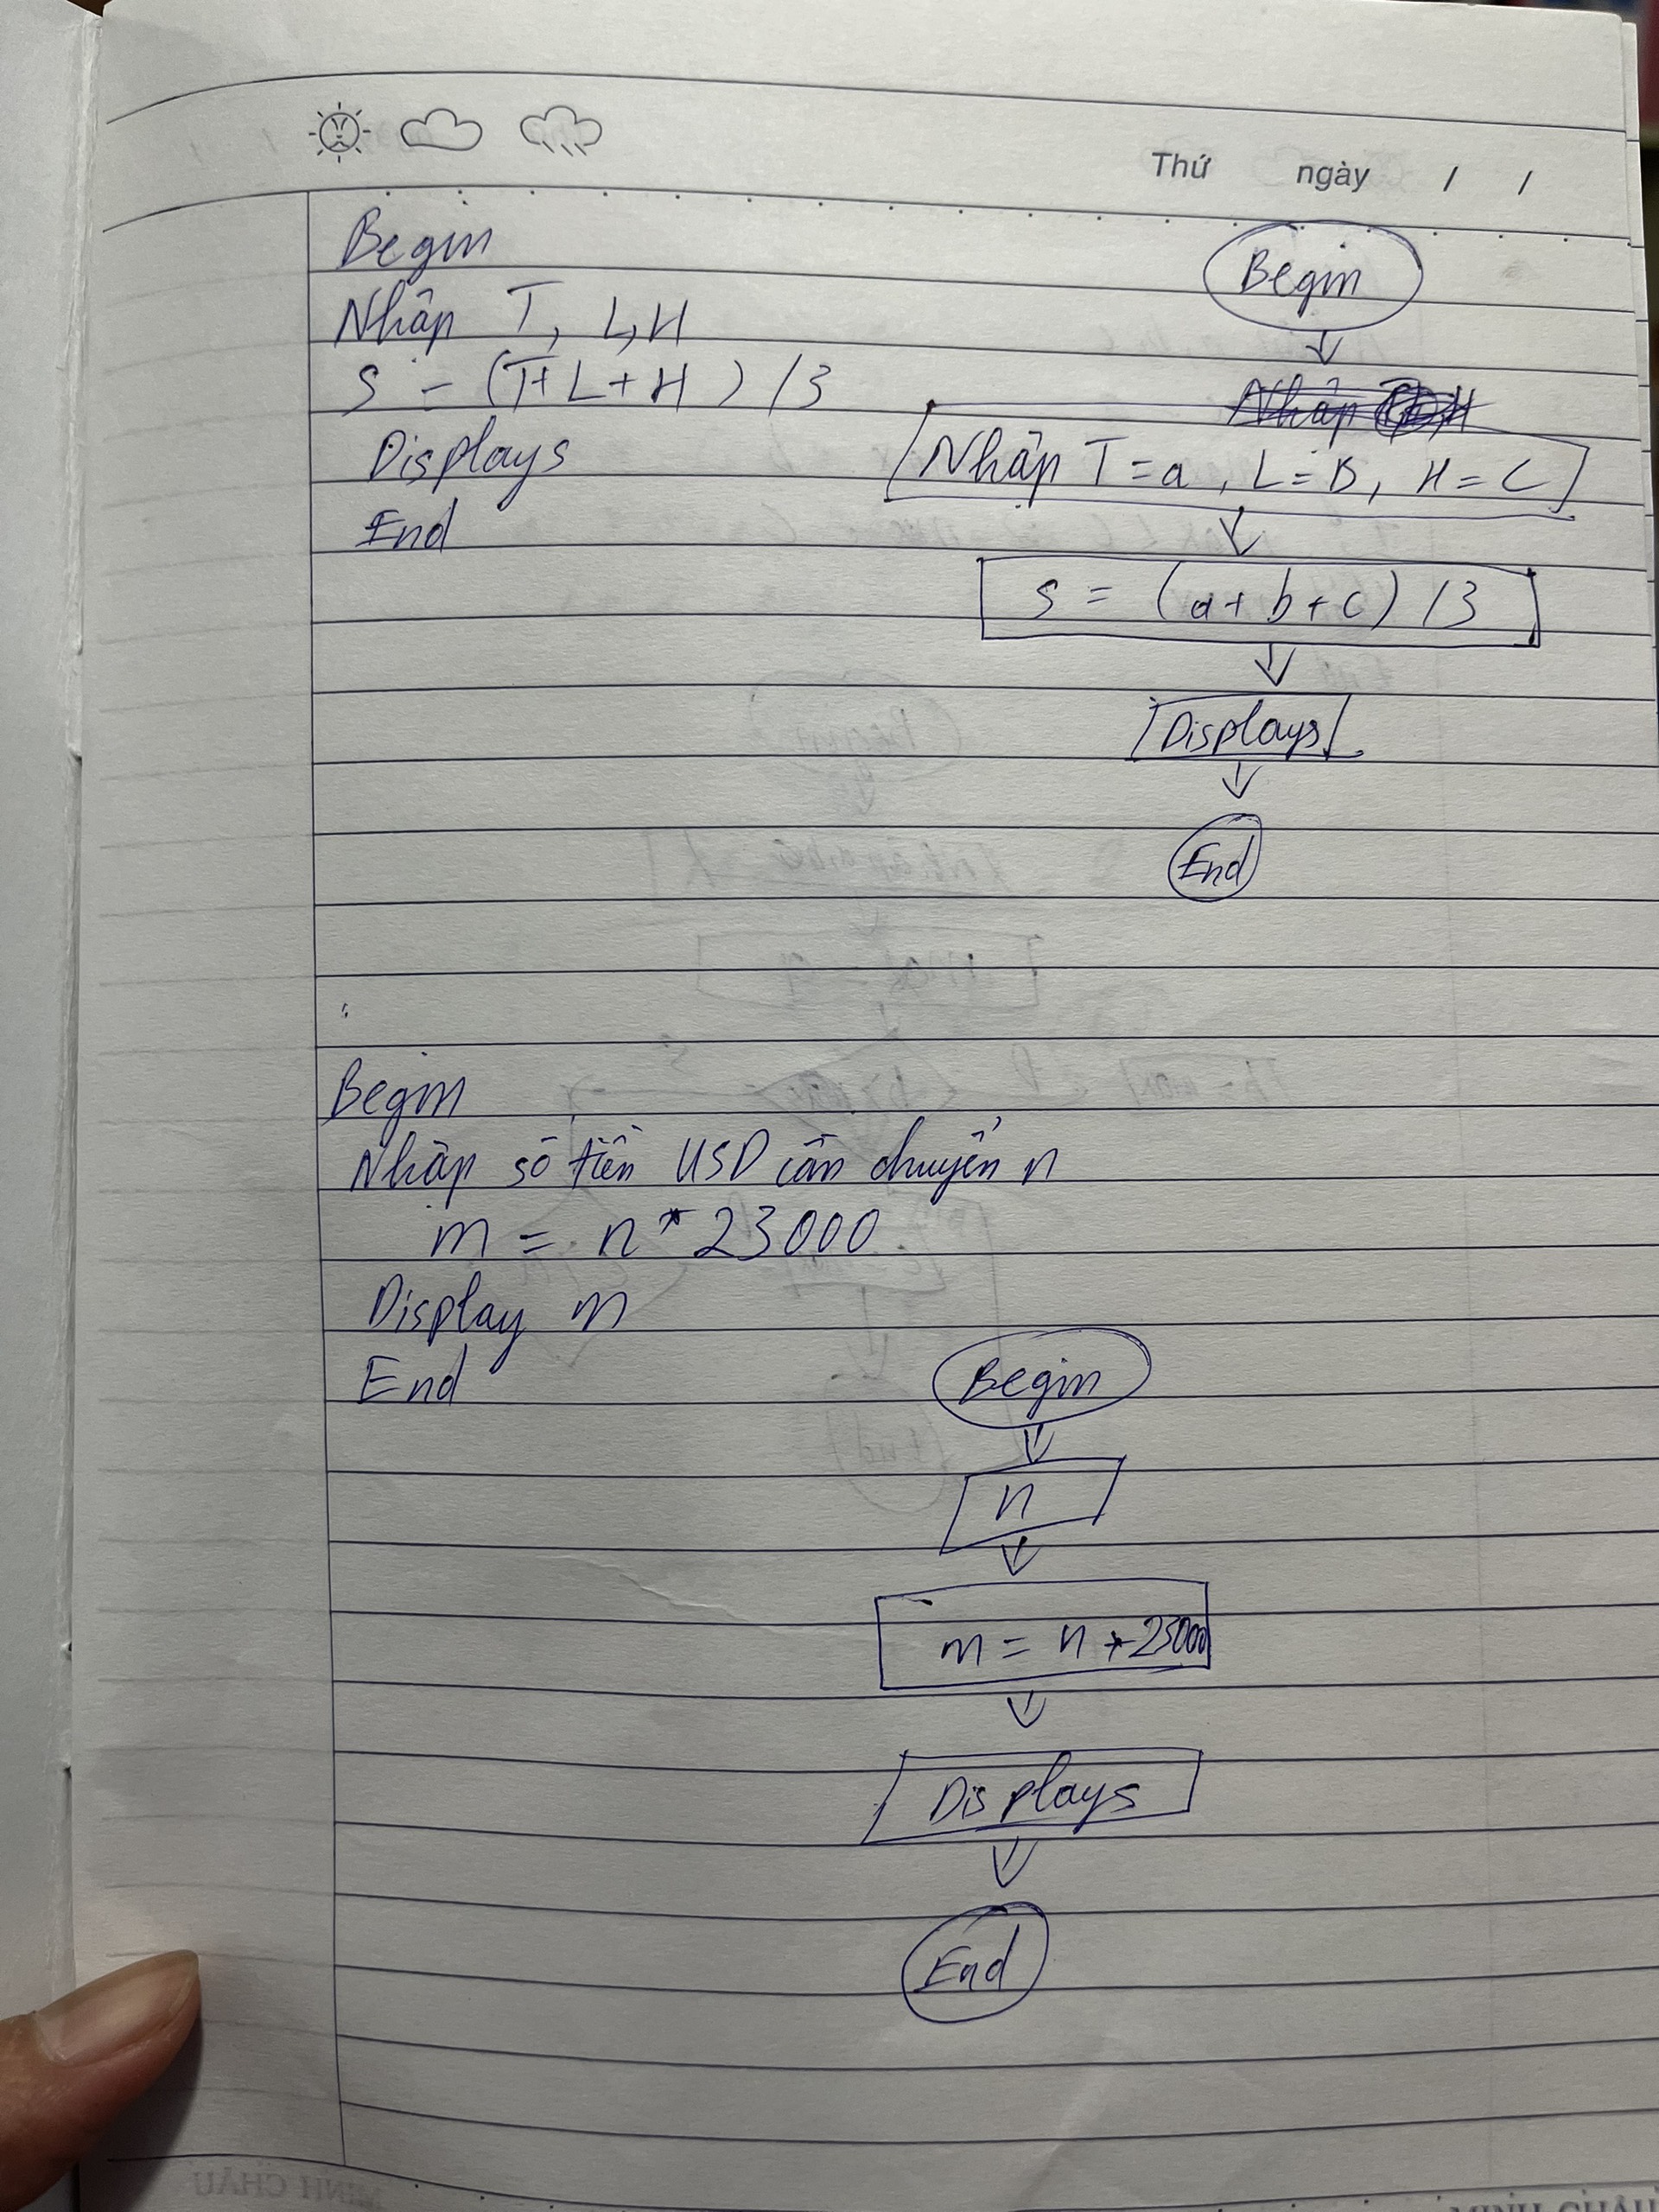 Thứ ngày / /
Begin
Nhập T, L, H
S = (T+L+H) /3
Displays
End
Begin
Nhập T=a, L=B, H=C
S = (a+b+c) /3
Displays
End
Begin
Nhập số tiền USD cần chuyển n
m = n * 23000
Display m
End
Begin
n
m = n * 23000
Displays
End
MINH CHÂU